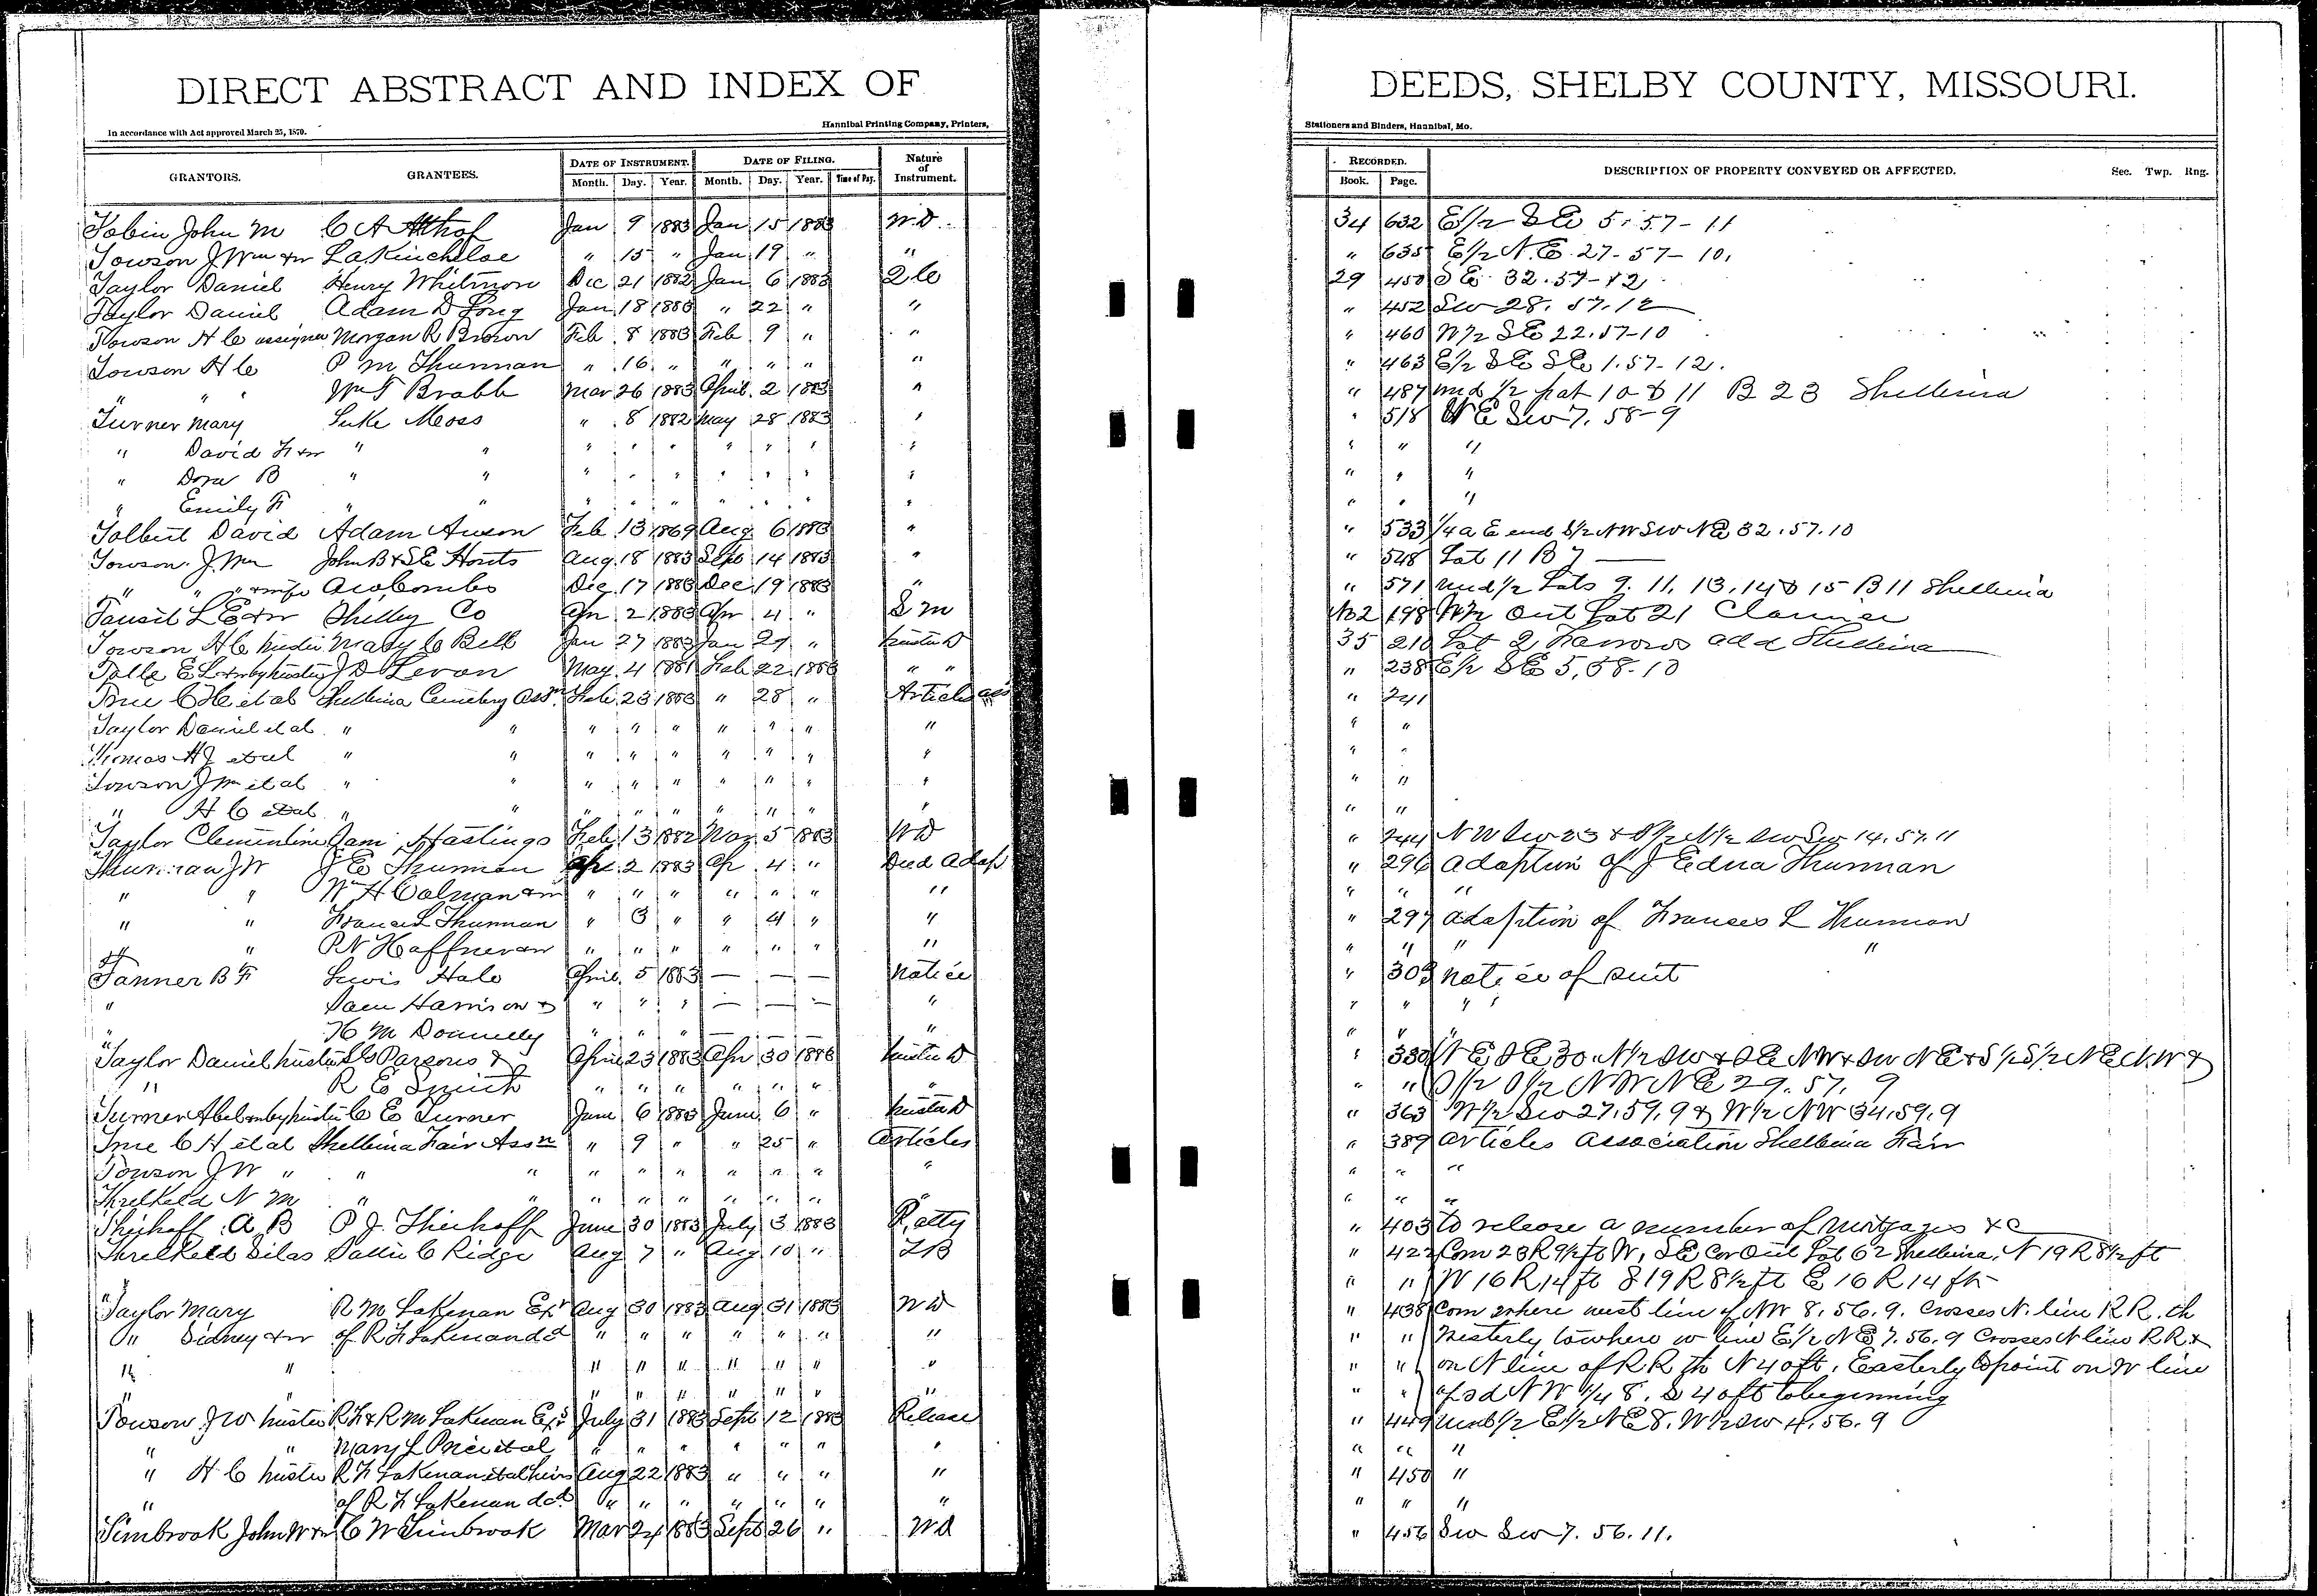 DIRECT ABSTRACT AND INDEX OF
DEEDS, SHELBY COUNTY, MISSOURI.
In accordance with Act approved March 25, 1870.
Hannibal Printing Company, Printers,
Stationers and Binders, Hannibal, Mo.
GRANTORS. GRANTEES. DATE OF INSTRUMENT. DATE OF FILING. Nature of Instrument. RECORDED. DESCRIPTION OF PROPERTY CONVEYED OR AFFECTED. Sec. Twp. Rng.
Month. Day. Year. Month. Day. Year. Time of Day. Book. Page.
Tobin John M C A Althof Jan 9 1883 Jan 15 1883 W.D. 34 632 E1/2 SE 5.57-11
Towson J Wm & w L A Kincheloe " 15 " Jan 19 " " " 635 E1/2 N.E. 27-57-10.
Taylor Daniel Henry Whitmore Dec 21 1882 Jan 6 1883 2 C 29 450 SE 32.57-12
Taylor Daniel Adam D Long Jan 18 1883 " 22 " " " 452 SW 28.57.12
Towson H C assignee Morgan R Brown Feb 8 1883 Feb 9 " " " 460 W1/2 SE 22.57-10
Towson H C P M Thurman " 16 " " " " " " 463 E1/2 SE SE 1.57-12.
" " Wm T Brabb Mar 26 1883 April 2 1883 " " 487 und 1/2 pat 10 & 11 B 23 Shelbina
Turner Mary Luke Moss " 8 1882 May 28 1883 " " 518 NE SW 7.58-9
" David F & w " " " " " " " " " " " "
" Dora B " " " " " " " " " " " "
" Emily F " " " " " " " " " " " "
Tolbert David Adam Feb 13 1869 Aug 6 1883 " " 533 1/4 a E end S1/2 NW SW NE 32.57.10
Towson J. Wm John B & S E Houts Aug 18 1883 Sept 14 1883 " " 548 Lot 11 B 7
" " " & wife A W Combs Dec 17 1883 Dec 19 1883 " " 571 und 1/2 Lots 9. 11, 13, 14 & 15 B 11 Shelbina
L E & w Shelby Co Apr 2 1883 Apr 4 " S M No 2 198 W1/2 Out Lot 21 Clarence
Towson H C trustee Mary C Bell Jan 27 1883 Jan 29 " trustee D 35 210 Lot 2 add Shelbina
E L & w by trustee J D Levan May 4 1881 Feb 22 1883 " " " 238 E1/2 SE 5.58-10
True C H et al Shelbina Cemetery Assn. Feb 23 1883 " 28 " Articles " 241
Taylor Daniel et al " " " " " " " " " " "
Thomas H J et al " " " " " " " " " " "
Towson J Wm et al " " " " " " " " " " "
" H C et al " " " " " " " " " " "
Taylor Clementine Sam Hastings Feb 13 1882 Mar 5 1883 WD " 244 NW SW 23 & S1/2 N1/2 SW SW 14.57.11
Thurman J W J E Thurman Apr 2 1883 Ap 4 " Deed Adop " 296 adaption of J Edna Thurman
" " Wm H Colman & w " " " " " " " " " "
" " Frances L Thurman " 3 " " 4 " " " 297 adaption of Frances L Thurman
" " P N Haffner & w " " " " " " " " " " "
Tanner B F Lewis Hale April 5 1883 — — — Notice " 303 notice of suit
" Sam Harrison & " " " — — — " " " "
" H M Donnelly " " " — — — " " " "
Taylor Daniel trustee Parsons & April 23 1883 Apr 30 1883 trustee D " 330 NE SE 30 N1/2 SW & SE NW & SW NE & S1/2 S1/2 NE NW &
" R E Smith " " " " " " " " " S1/2 S1/2 NW NE 29.57.9
Turner Abel & w by trustee C E Turner June 6 1883 June 6 " trustee D " 363 W1/2 SW 27.59.9 & W1/2 NW 34.59.9
True C H et al Shelbina Fair Assn " 9 " " 25 " Articles " 389 Articles Association Shelbina Fair
Towson J W " " " " " " " " " " " " "
Threlkeld N M " " " " " " " " " " " "
Thiehoff A B P J Thiehoff June 30 1883 July 3 1883 P. atty " 403 to release a number of mortgages &c
Threlkeld Silas Sallie C Ridge Aug 7 " Aug 10 " " 422 Com 23 R 9 1/2 ft W, SE cor Out Lot 62 Shelbina, N 19 R 8 1/2 ft
" " W 16 R 14 ft S 19 R 8 1/2 ft E 16 R 14 ft
Taylor Mary R M Lakenan Exr Aug 30 1883 Aug 31 1883 WD " 438 Com where west line of NW 8.56.9. crosses N. line R R. th
" Sidney & w of R F Lakenan dcd " " " " " " " " " Westerly to where w line E1/2 NE 7.56.9 crosses N line R R &
" " " " " " " " " " " on N line of R R th N 40 ft, Easterly to point on W line
" " " " " " " " " of sd NW 1/4 8. S 40 ft to beginning
Towson J W trustee R F & R M Lakenan Exrs July 31 1883 Sept 12 1883 Release " 449 und 1/2 E1/2 NE 8. W1/2 SW 4.56.9
" " Mary L Price et al " " " " " " " " " "
" H C trustee R F Lakenan et al heirs Aug 22 1883 " " " " " 450 "
" of R F Lakenan dcd " " " " " " " " " "
Timbrook John W & w C W Timbrook Mar 24 1883 Sept 26 " Wd " 456 SW SW 7.56.11.